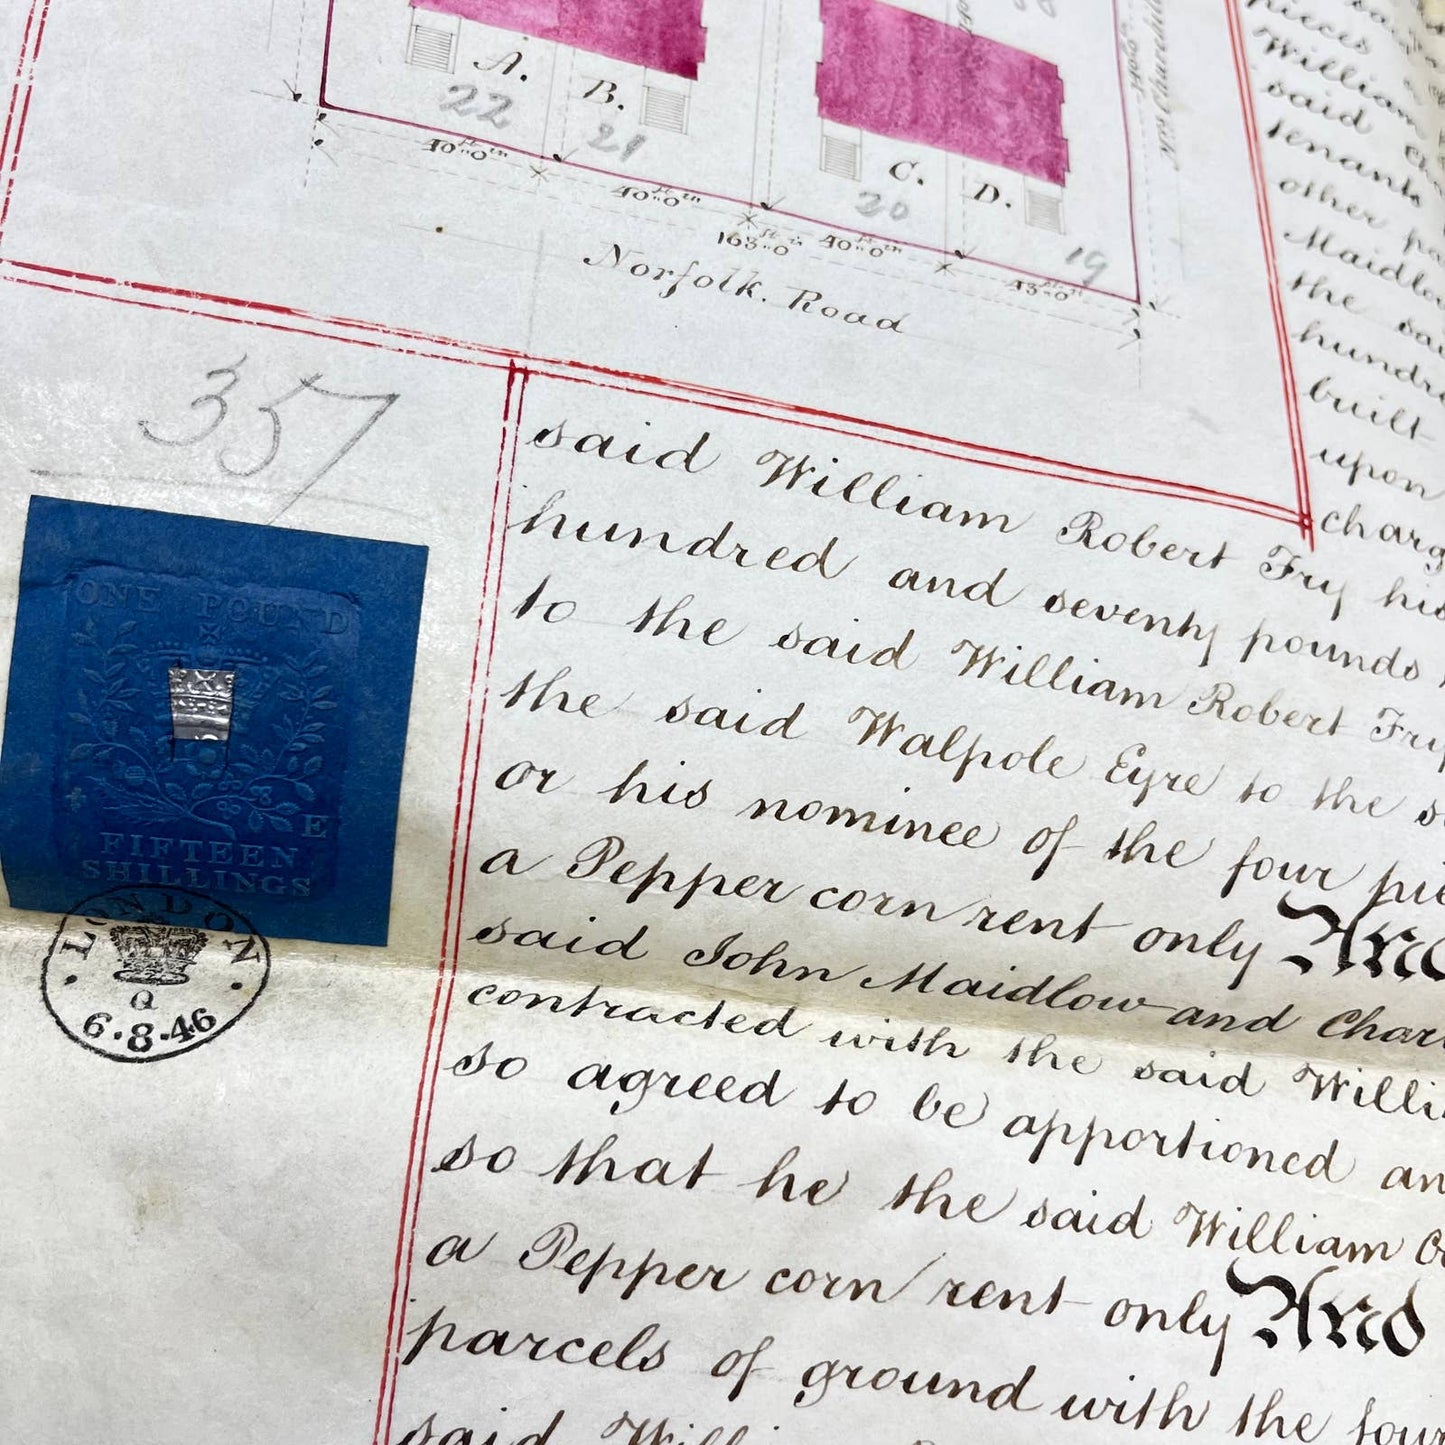 A.
B.
22
21
C.
D.
20
19
40"0"
40"0"
163"0"
40"0"
43"0"
Norfolk. Road
pieces
William
said
tenants
other
Maidlow
the said
hundred
built
upon
charg
357
ONE POUND
E
FIFTEEN
SHILLINGS
LONDON
Q
6.8.46
said William Robert Fry his
hundred and seventy pounds
to the said William Robert Fry
the said Walpole Eyre to the s
or his nominee of the four pie
a Pepper corn rent only And
said John Maidlow and Char
contracted with the said Willi
so agreed to be apportioned an
so that he the said William
a Pepper corn rent only And
parcels of ground with the four
said Willi